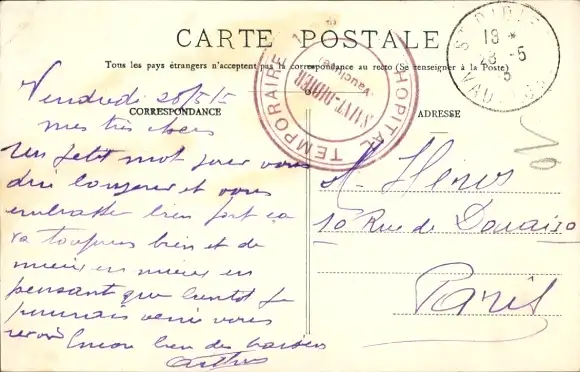 CARTE POSTALE
Tous les pays étrangers n'acceptent pas la correspondance au recto (Se renseigner à la Poste)
CORRESPONDANCE
ADRESSE
HOPITAL TEMPORAIRE
SAINT-DIDIER
Vaucluse
ST DIDIER
18 *
28 -5
VAUCLUSE
Vendredi 28/5/5
mes très chers
Un petit mot pour vous
dire bonjour et vous
embrasser bien fort ça
va toujours bien et de
mieux en mieux en
pensant que bientot je
pourrais venir vous
revoir Encore bien des baisers
Arthur
M.
10 Rue de Douai 10
Paris